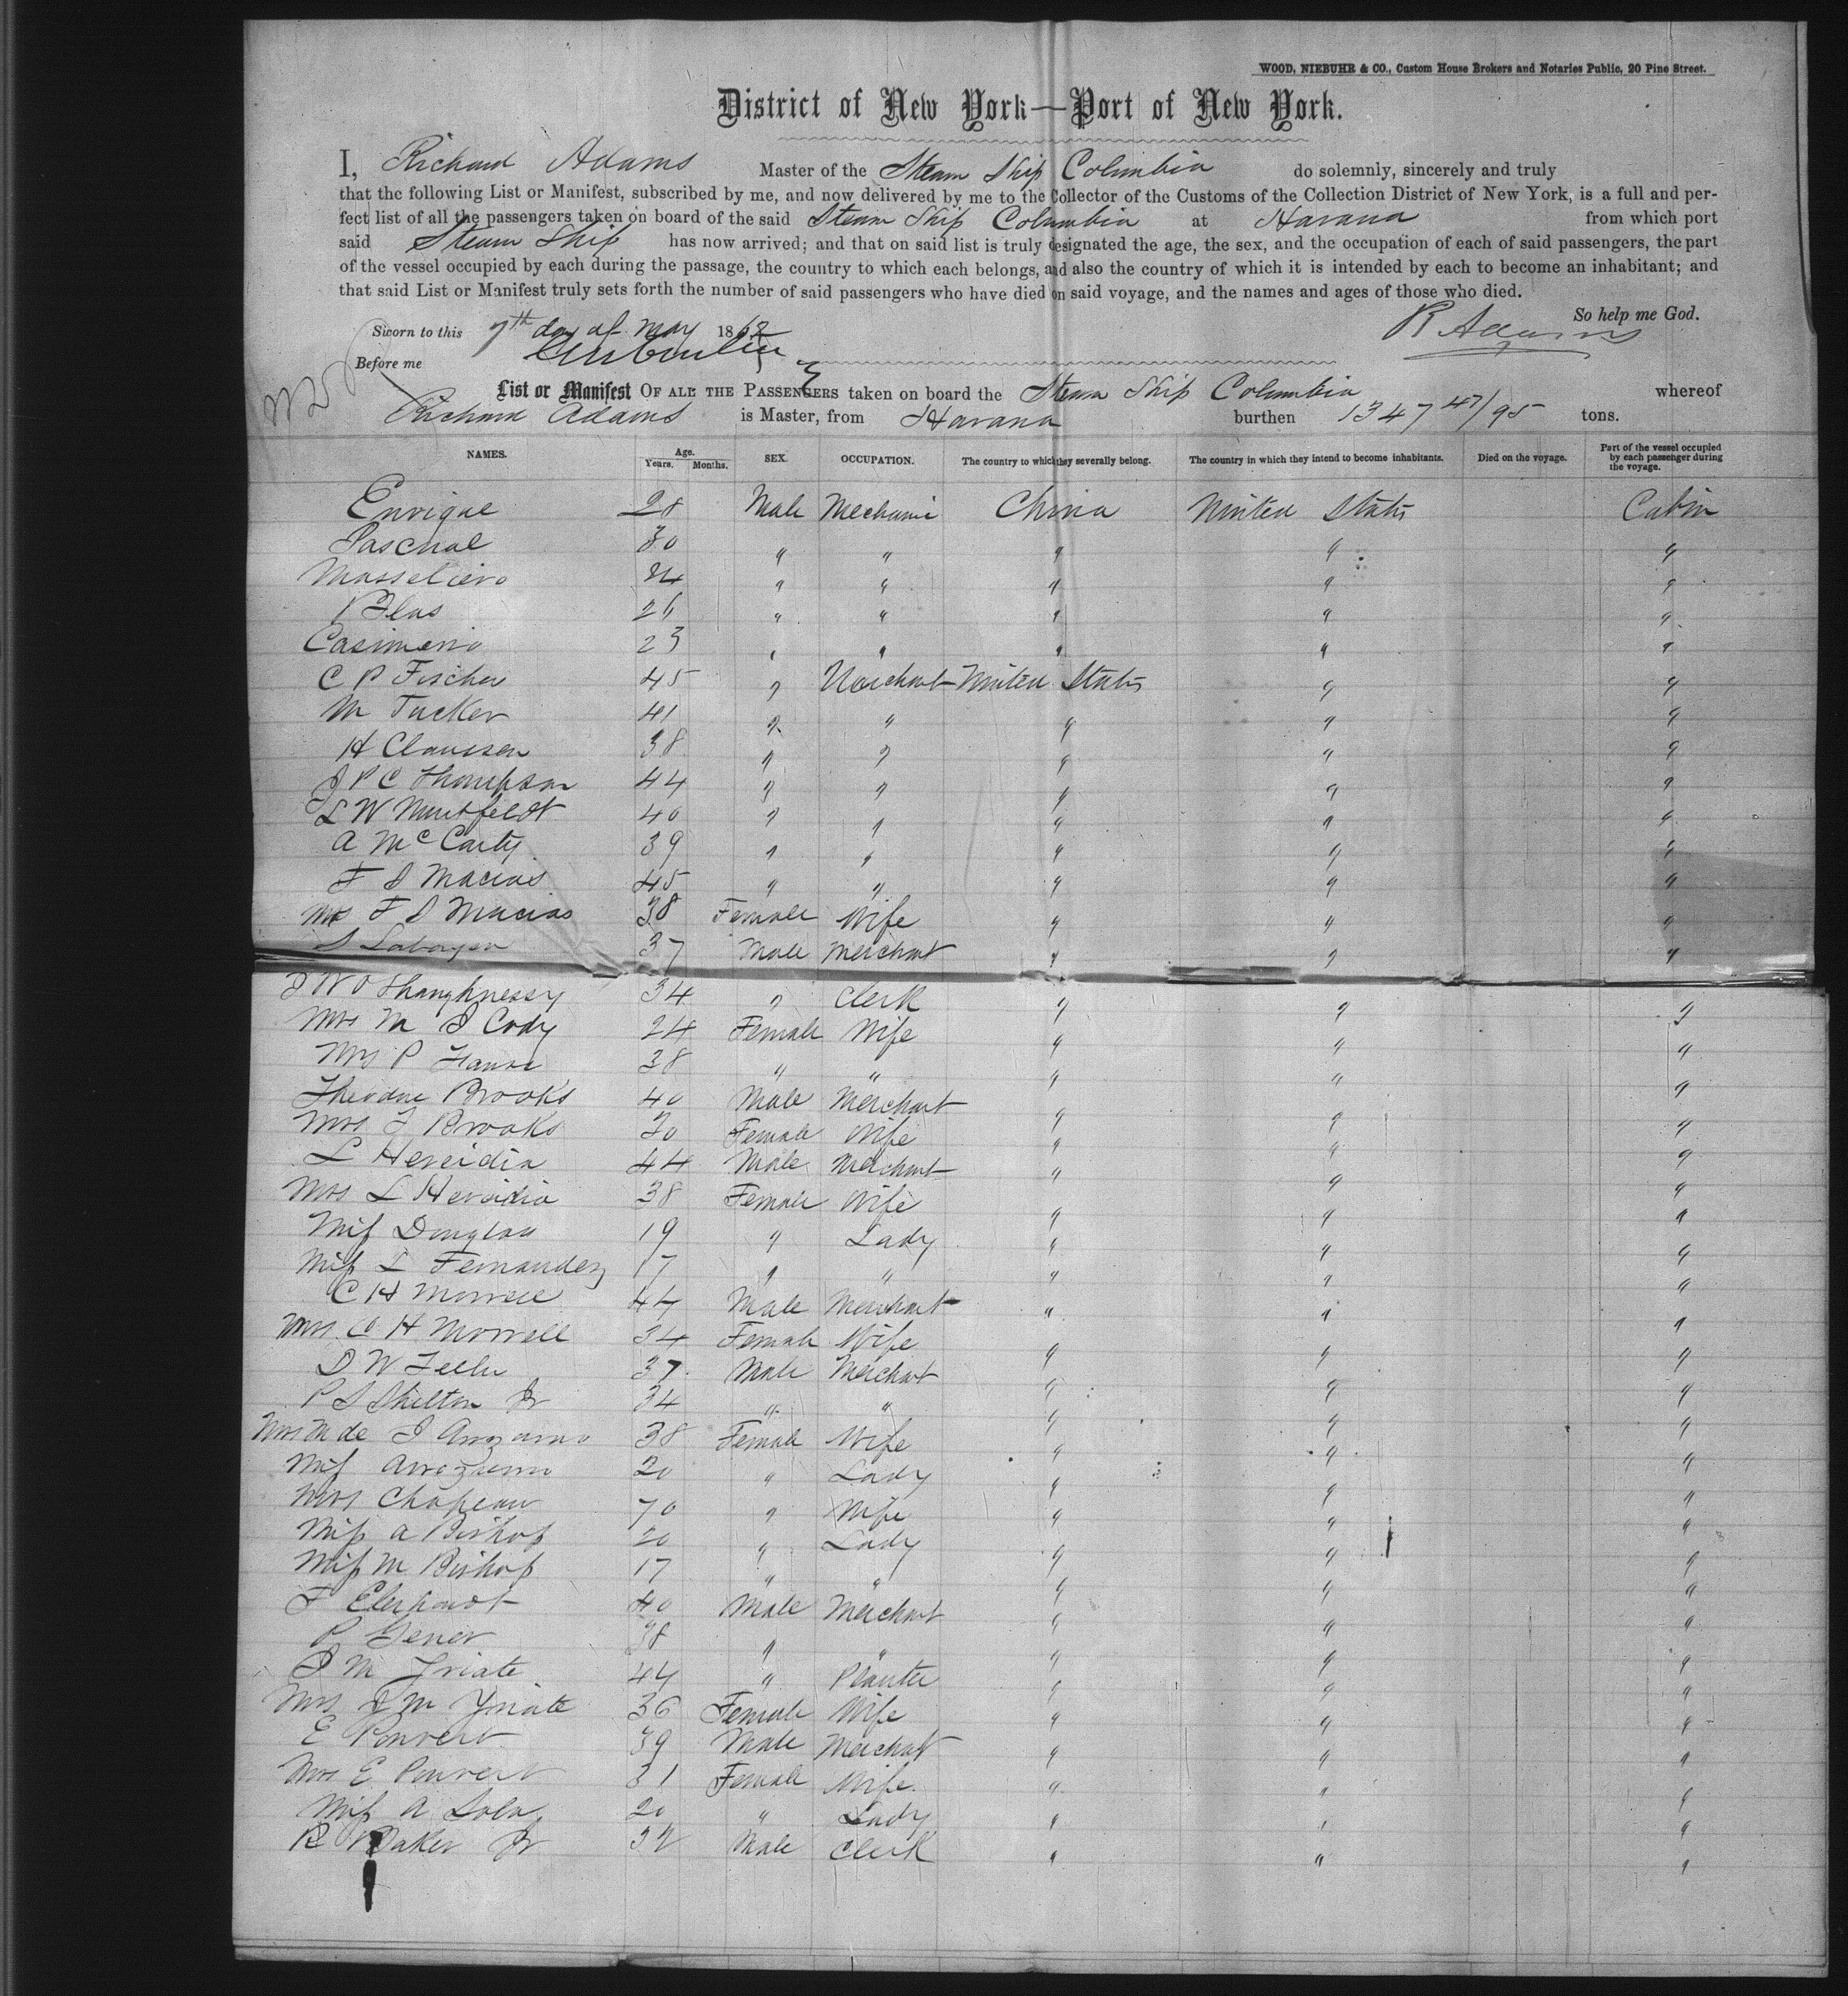 WOOD, NIEBUHR & CO., Custom House Brokers and Notaries Public, 20 Pine Street.
District of New York—Port of New York.
I, Richard Adams Master of the Steam Ship Columbia do solemnly, sincerely and truly
that the following List or Manifest, subscribed by me, and now delivered by me to the Collector of the Customs of the Collection District of New York, is a full and per-
fect list of all the passengers taken on board of the said Steam Ship Columbia at Havana from which port
said Steam Ship has now arrived; and that on said list is truly designated the age, the sex, and the occupation of each of said passengers, the part
of the vessel occupied by each during the passage, the country to which each belongs, and also the country of which it is intended by each to become an inhabitant; and
that said List or Manifest truly sets forth the number of said passengers who have died on said voyage, and the names and ages of those who died.
So help me God.
Sworn to this 7th day of May 1868 R Adams
Before me
List or Manifest OF ALL THE PASSENGERS taken on board the Steam Ship Columbia whereof
Richard Adams is Master, from Havana burthen 1347 47/95 tons.
NAMES. Age. Years. Months. SEX. OCCUPATION. The country to which they severally belong. The country in which they intend to become inhabitants. Died on the voyage. Part of the vessel occupied by each passenger during the voyage.
Enrique 28 Male Mechanic China United States Cabin
Paschal 30 " " " " "
24 " " " " "
Blas 26 " " " " "
Casimerio 23 " " " " "
C P Fischer 45 " Merchant United States " "
M Tucker 41 " " " " "
H Claussen 38 " " " " "
J P C Thompson 44 " " " " "
L W 40 " " " " "
A McCarty 39 " " " " "
F D Macias 45 " " " " "
Mrs F D Macias 38 Female Wife " " "
37 Male Merchant " " "
J W O Shaughnessy 34 " Clerk " " "
Mrs M J Cody 24 Female Wife " " "
Mrs P 38 " " " " "
Theodore Brooks 40 Male Merchant " " "
Mrs T Brooks 30 Female Wife " " "
L Hereidia 44 Male Merchant " " "
Mrs L Hereidia 38 Female Wife " " "
Miss Douglass 19 " Lady " " "
Miss L Fernandez 17 " " " " "
C H Morrell 44 Male Merchant " " "
Mrs C H Morrell 34 Female Wife " " "
D W 37 Male Merchant " " "
P S Shelton Jr 34 " " " " "
Mrs M de J 38 Female Wife " " "
Miss 20 " Lady " " "
Mrs Chapeau 70 " Wife " " "
Miss A Bishop 20 " Lady " " "
Miss M Bishop 17 " " " " "
F 40 Male Merchant " " "
P Gener 38 " " " " "
J M Yriate 44 " Planter " " "
Mrs J M Yriate 36 Female Wife " " "
E Ponvert 39 Male Merchant " " "
Mrs E Ponvert 31 Female Wife " " "
Miss A 20 " Lady " " "
R Baker Jr 32 Male Clerk " " "